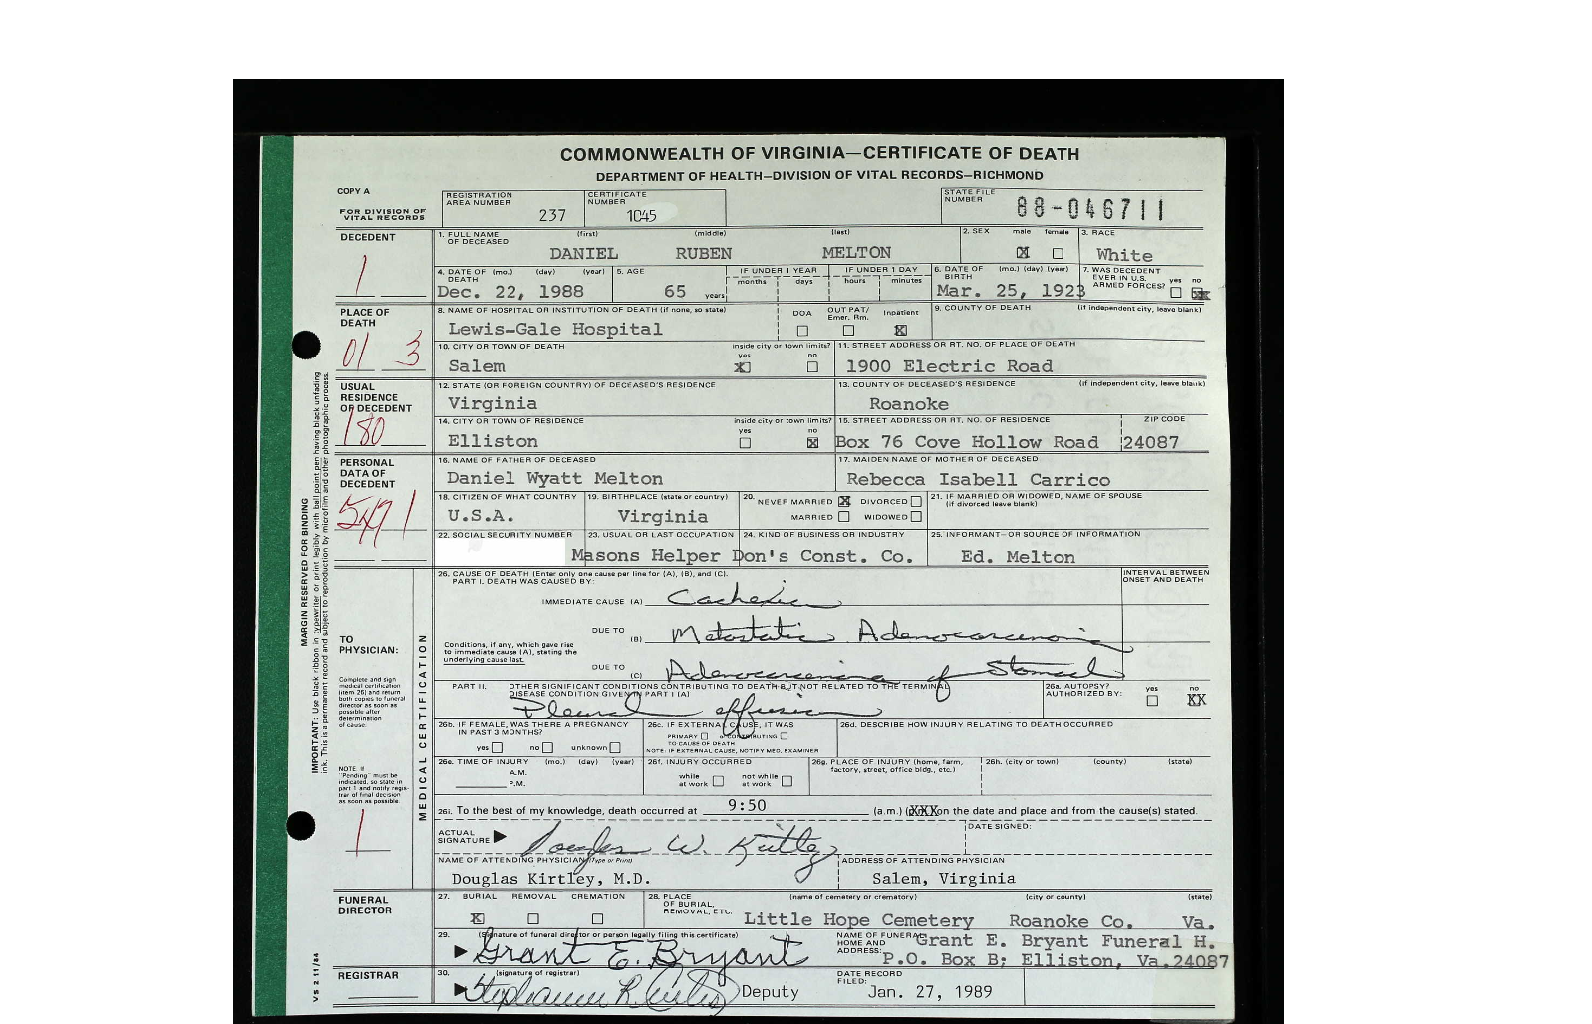 COMMONWEALTH OF VIRGINIA—CERTIFICATE OF DEATH
DEPARTMENT OF HEALTH—DIVISION OF VITAL RECORDS—RICHMOND
COPY A
FOR DIVISION OF VITAL RECORDS
REGISTRATION AREA NUMBER 237
CERTIFICATE NUMBER 1045
STATE FILE NUMBER 88-046711
DECEDENT
1
1. FULL NAME OF DECEASED (first) (middle) (last)
DANIEL RUBEN MELTON
2. SEX male female
X
3. RACE
White
4. DATE OF DEATH (mo.) (day) (year)
Dec. 22, 1988
5. AGE
65 years
IF UNDER 1 YEAR months days
IF UNDER 1 DAY hours minutes
6. DATE OF BIRTH (mo.) (day) (year)
Mar. 25, 1923
7. WAS DECEDENT EVER IN U.S. ARMED FORCES? yes no
PLACE OF DEATH
01 3
8. NAME OF HOSPITAL OR INSTITUTION OF DEATH (if none, so state)
Lewis-Gale Hospital
DOA OUT PAT/ Emer. Rm. Inpatient
X
9. COUNTY OF DEATH (if independent city, leave blank)
10. CITY OR TOWN OF DEATH
Salem
inside city or town limits? yes no
X
11. STREET ADDRESS OR RT. NO. OF PLACE OF DEATH
1900 Electric Road
USUAL RESIDENCE OF DECEDENT
180
12. STATE (OR FOREIGN COUNTRY) OF DECEASED'S RESIDENCE
Virginia
13. COUNTY OF DECEASED'S RESIDENCE (if independent city, leave blank)
Roanoke
14. CITY OR TOWN OF RESIDENCE
Elliston
inside city or town limits? yes no
X
15. STREET ADDRESS OR RT. NO. OF RESIDENCE
Box 76 Cove Hollow Road
ZIP CODE
24087
PERSONAL DATA OF DECEDENT
16. NAME OF FATHER OF DECEASED
Daniel Wyatt Melton
17. MAIDEN NAME OF MOTHER OF DECEASED
Rebecca Isabell Carrico
18. CITIZEN OF WHAT COUNTRY
U.S.A.
19. BIRTHPLACE (state or country)
Virginia
20. NEVER MARRIED X DIVORCED
MARRIED WIDOWED
21. IF MARRIED OR WIDOWED, NAME OF SPOUSE
(if divorced leave blank)
22. SOCIAL SECURITY NUMBER
23. USUAL OR LAST OCCUPATION
Masons Helper
24. KIND OF BUSINESS OR INDUSTRY
Don's Const. Co.
25. INFORMANT—OR SOURCE OF INFORMATION
Ed. Melton
MARGIN RESERVED FOR BINDING
IMPORTANT: Use black ribbon in typewriter or print legibly with ball point pen having black unfading
ink. This is a permanent record and subject to reproduction by microfilm and other photographic process.
TO PHYSICIAN:
Complete and sign
medical certification
(item 26) and return
both copies to funeral
director as soon as
possible after
determination
of cause.
NOTE: If
"Pending" must be
indicated, so state in
part 1 and notify regis-
trar of final decision
as soon as possible.
1
MEDICAL CERTIFICATION
26. CAUSE OF DEATH (Enter only one cause per line for (A), (B), and (C).
PART I. DEATH WAS CAUSED BY:
INTERVAL BETWEEN ONSET AND DEATH
IMMEDIATE CAUSE (A) Cachexia
Conditions, if any, which gave rise
to immediate cause (A), stating the
underlying cause last.
DUE TO (B) Metastatic Adenocarcinoma
DUE TO (C) Adenocarcinoma of Stomach
PART II. OTHER SIGNIFICANT CONDITIONS CONTRIBUTING TO DEATH BUT NOT RELATED TO THE TERMINAL
DISEASE CONDITION GIVEN IN PART I (A)
Pleural effusion
26a. AUTOPSY? AUTHORIZED BY: yes no
XX
26b. IF FEMALE, WAS THERE A PREGNANCY IN PAST 3 MONTHS?
yes no unknown
26c. IF EXTERNAL CAUSE, IT WAS
PRIMARY or CONTRIBUTING
TO CAUSE OF DEATH
NOTE: IF EXTERNAL CAUSE, NOTIFY MED. EXAMINER
26d. DESCRIBE HOW INJURY RELATING TO DEATH OCCURRED
26e. TIME OF INJURY (mo.) (day) (year)
A.M.
P.M.
26f. INJURY OCCURRED
while at work not while at work
26g. PLACE OF INJURY (home, farm, factory, street, office bldg., etc.)
26h. (city or town) (county) (state)
26i. To the best of my knowledge, death occurred at 9:50 (a.m.) (XXX on the date and place and from the cause(s) stated.
ACTUAL SIGNATURE Douglas W. Kirtley
DATE SIGNED:
NAME OF ATTENDING PHYSICIAN (Type or Print)
Douglas Kirtley, M.D.
ADDRESS OF ATTENDING PHYSICIAN
Salem, Virginia
FUNERAL DIRECTOR
27. BURIAL REMOVAL CREMATION
X
28. PLACE OF BURIAL, REMOVAL, ETC. (name of cemetery or crematory) (city or county) (state)
Little Hope Cemetery Roanoke Co. Va.
29. (Signature of funeral director or person legally filing this certificate)
Grant E. Bryant
NAME OF FUNERAL HOME AND ADDRESS: Grant E. Bryant Funeral H.
P.O. Box B; Elliston, Va.24087
REGISTRAR
30. (signature of registrar)
Deputy
DATE RECORD FILED:
Jan. 27, 1989
VS 2 11/84